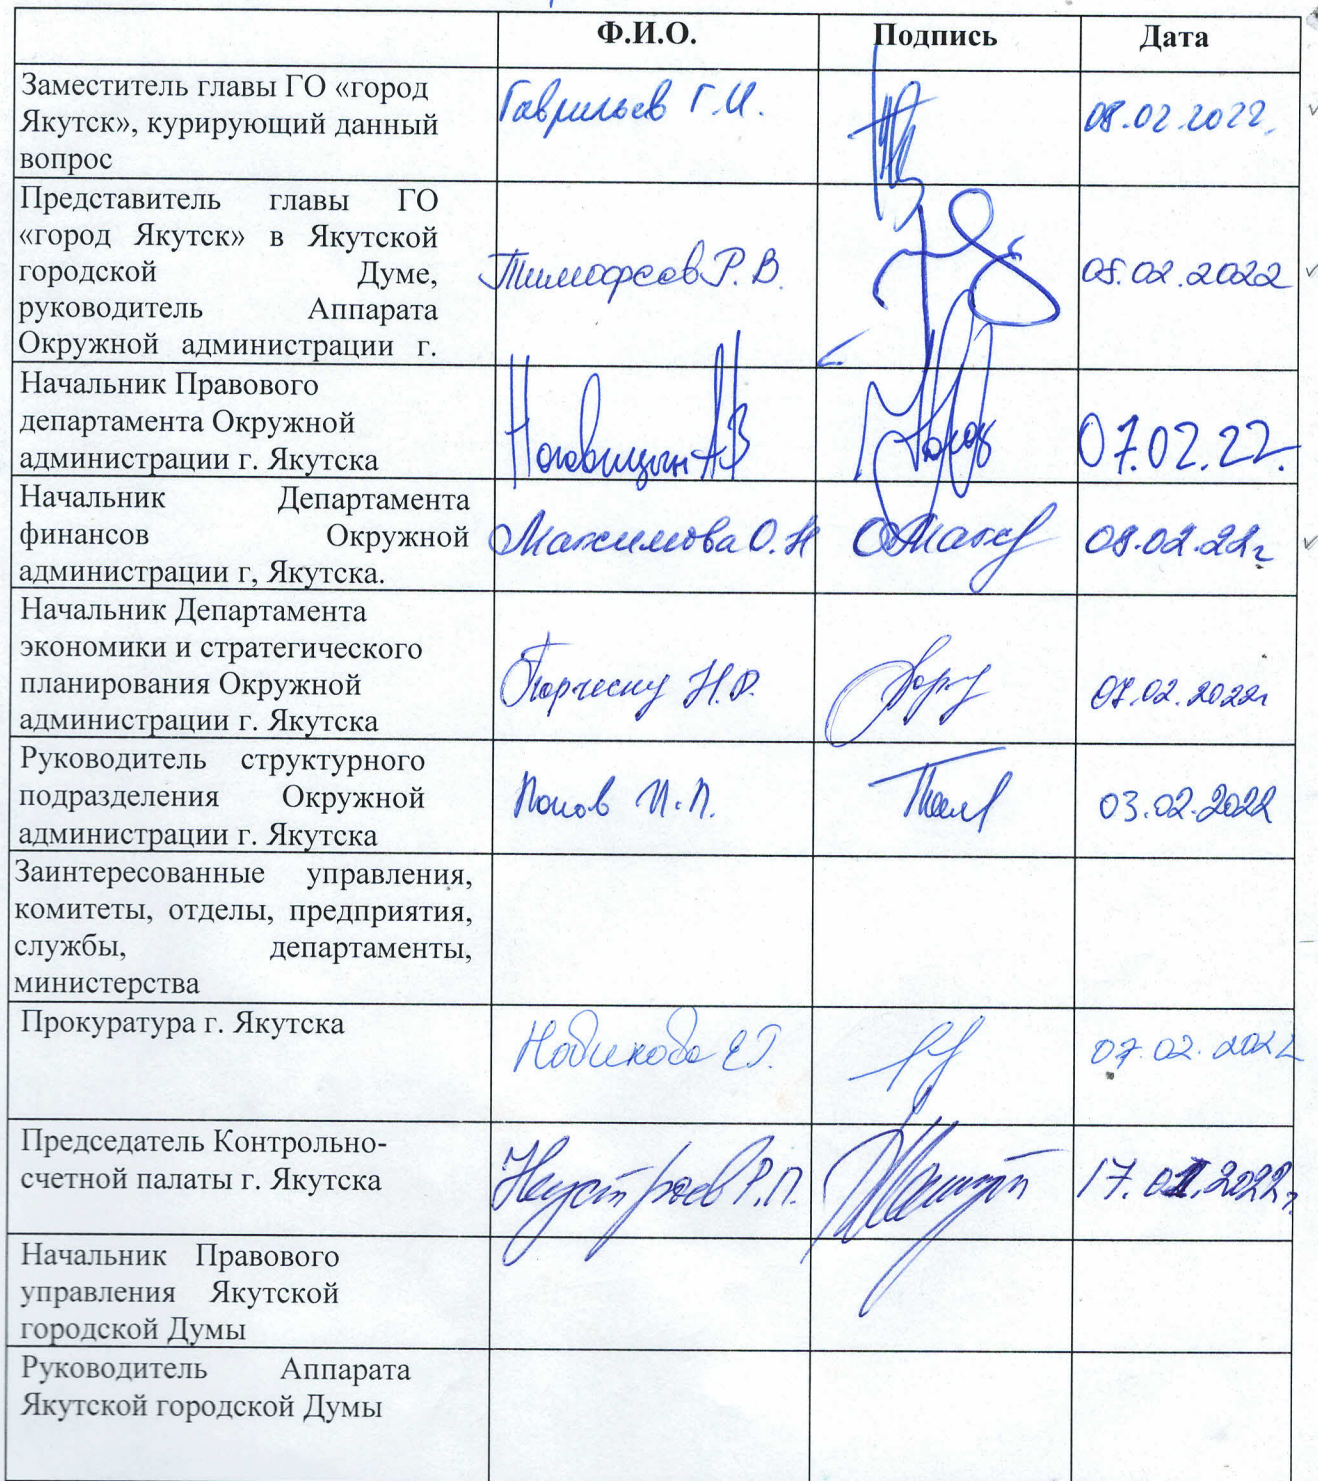 Ф.И.О. Подпись Дата
Заместитель главы ГО «город
Якутск», курирующий данный
вопрос
Гаврильев Г.И. 08.02.2022.
Представитель главы ГО
«город Якутск» в Якутской
городской Думе,
руководитель Аппарата
Окружной администрации г.
Тимофеев Р.В. 08.02.2022
Начальник Правового
департамента Окружной
администрации г. Якутска
Ноговицын АВ 07.02.22.
Начальник Департамента
финансов Окружной
администрации г, Якутска.
Максимова О.Н 08.02.22г
Начальник Департамента
экономики и стратегического
планирования Окружной
администрации г. Якутска
Н.Р. 07.02.2022г
Руководитель структурного
подразделения Окружной
администрации г. Якутска
Попов И.П. 03.02.2022
Заинтересованные управления,
комитеты, отделы, предприятия,
службы, департаменты,
министерства
Прокуратура г. Якутска
Новикова ЕГ. 07.02.2022
Председатель Контрольно-
счетной палаты г. Якутска
Неустроев Р.П.
Начальник Правового
управления Якутской
городской Думы
Руководитель Аппарата
Якутской городской Думы